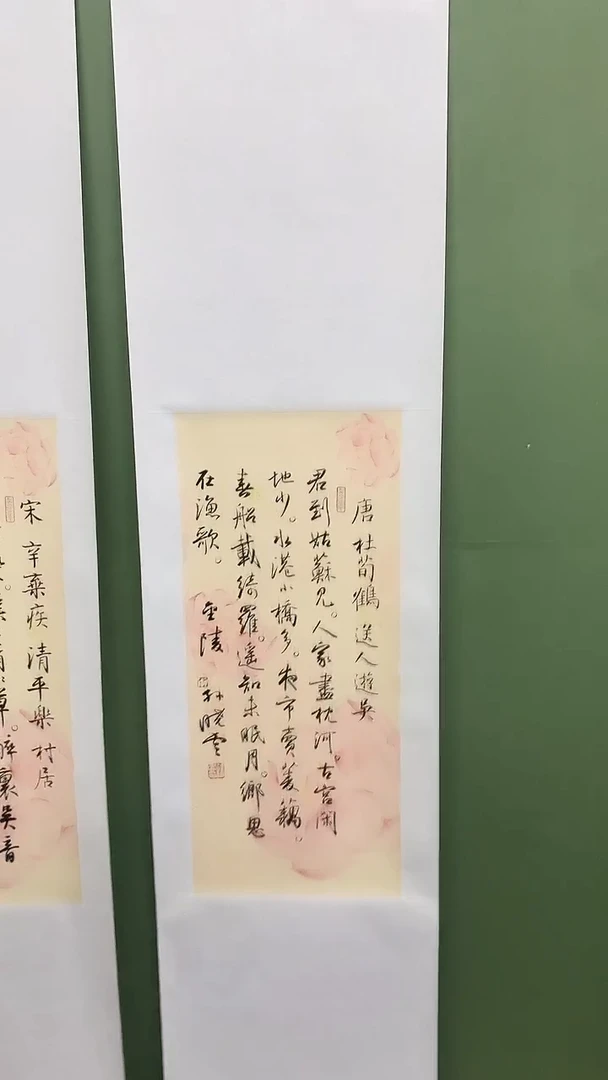 唐 杜荀鶴 送人遊吳
君到姑蘇見。人家盡枕河。古宮閑
地少。水港小橋多。夜市賣菱藕。
春船載綺羅。遥知未眠月。鄉思
在漁歌。 金陵 孫曉雲
宋 辛棄疾 清平樂 村居
草。醉裏吳音